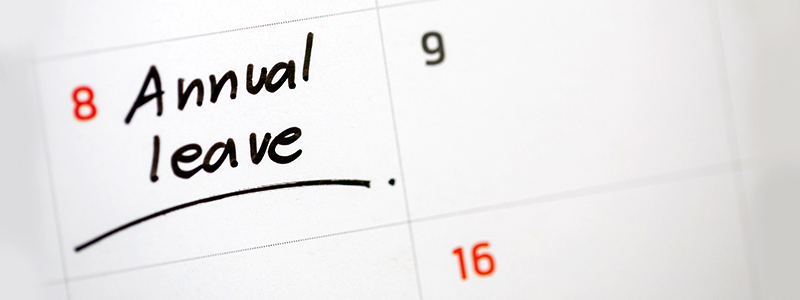 8 Annual 9
leave
16